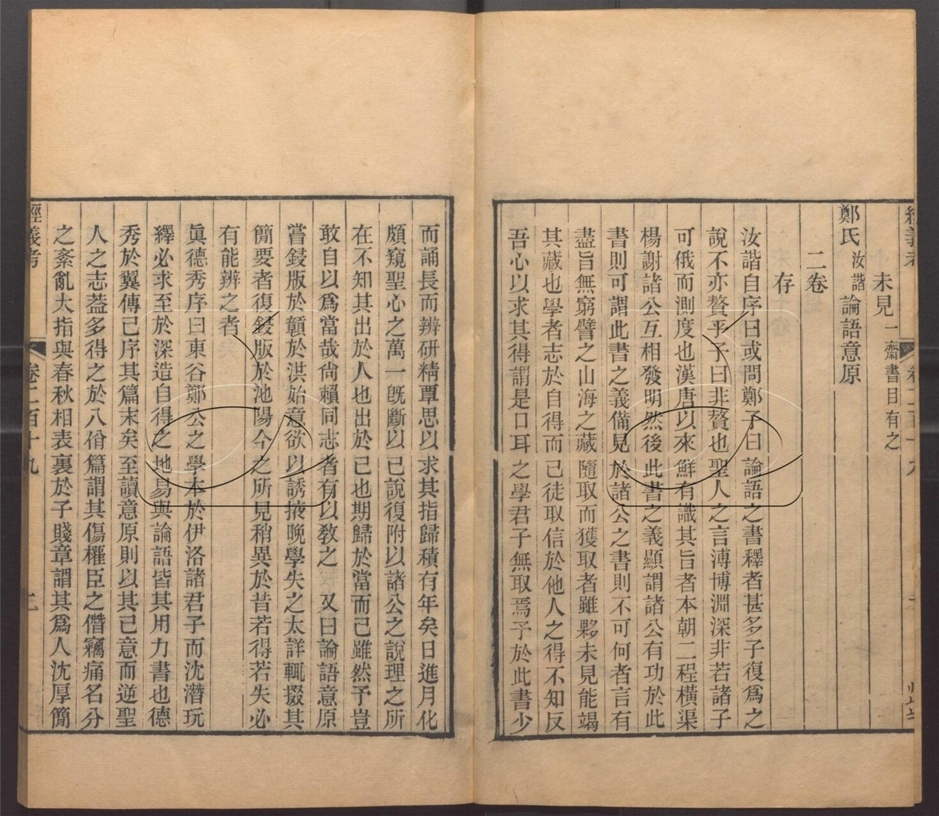 未見一齋書目有之
鄭氏汝諧論語意原
二卷
存
汝諧自序曰或問鄭子曰論語之書釋者甚多子復爲之
說不亦贅乎予曰非贅也聖人之言溥博淵深非若諸子
可俄而測度也漢唐以來鮮有識其旨者本朝二程橫渠
楊謝諸公互相發明然後此書之義顯謂諸公有功於此
書則可謂此書之義備見於諸公之書則不可何者言有
盡旨無窮譬之山海之藏隨取而獲取者雖夥未見能竭
其藏也學者志於自得而已徒取信於他人之得不知反
吾心以求其得謂是口耳之學君子無取焉予於此書少
而誦長而辨研精覃思以求其指歸積有年矣日進月化
頗窺聖心之萬一旣斷以己說復附以諸公之說理之所
在不知其出於人也出於己也期歸於當而已雖然予豈
敢自以爲當哉尙賴同志者有以敎之 又曰論語意原
嘗鋟版於贛於洪始意欲以誘掖晚學失之太詳輒掇其
簡要者復鋟版於池陽今之所見稍異於昔若得若失必
有能辨之者
眞德秀序曰東谷鄭公之學本於伊洛諸君子而沈潛玩
繹必求至於深造自得之地易與論語皆其用力書也德
秀於翼傳已序其篇末矣至讀意原則以其已意而逆聖
人之志葢多得之於八佾篇謂其傷權臣之僭竊痛名分
之紊亂大指與春秋相表裏於子賤章謂其爲人沈厚簡
經義考 卷二百十九 二